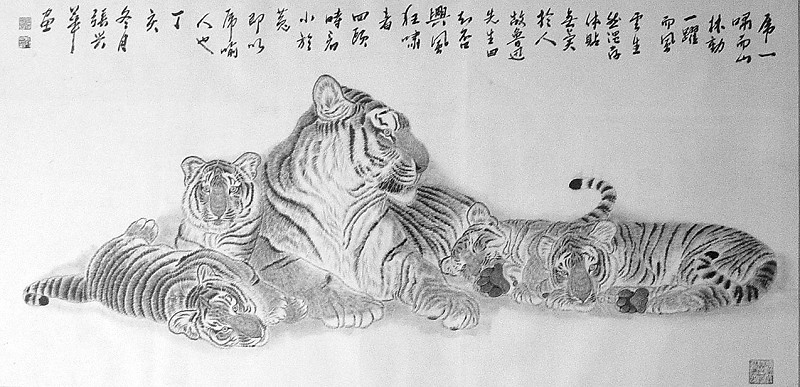 虎一
啸而山
林動
一躍
而風
雲生
然温存
体贴
無異
於人
故魯迅
先生曰
知否
興風
狂嘯
者
回
時看
小於
菟
即以
虎喻
人也
丁
亥
冬月
張興
華
画